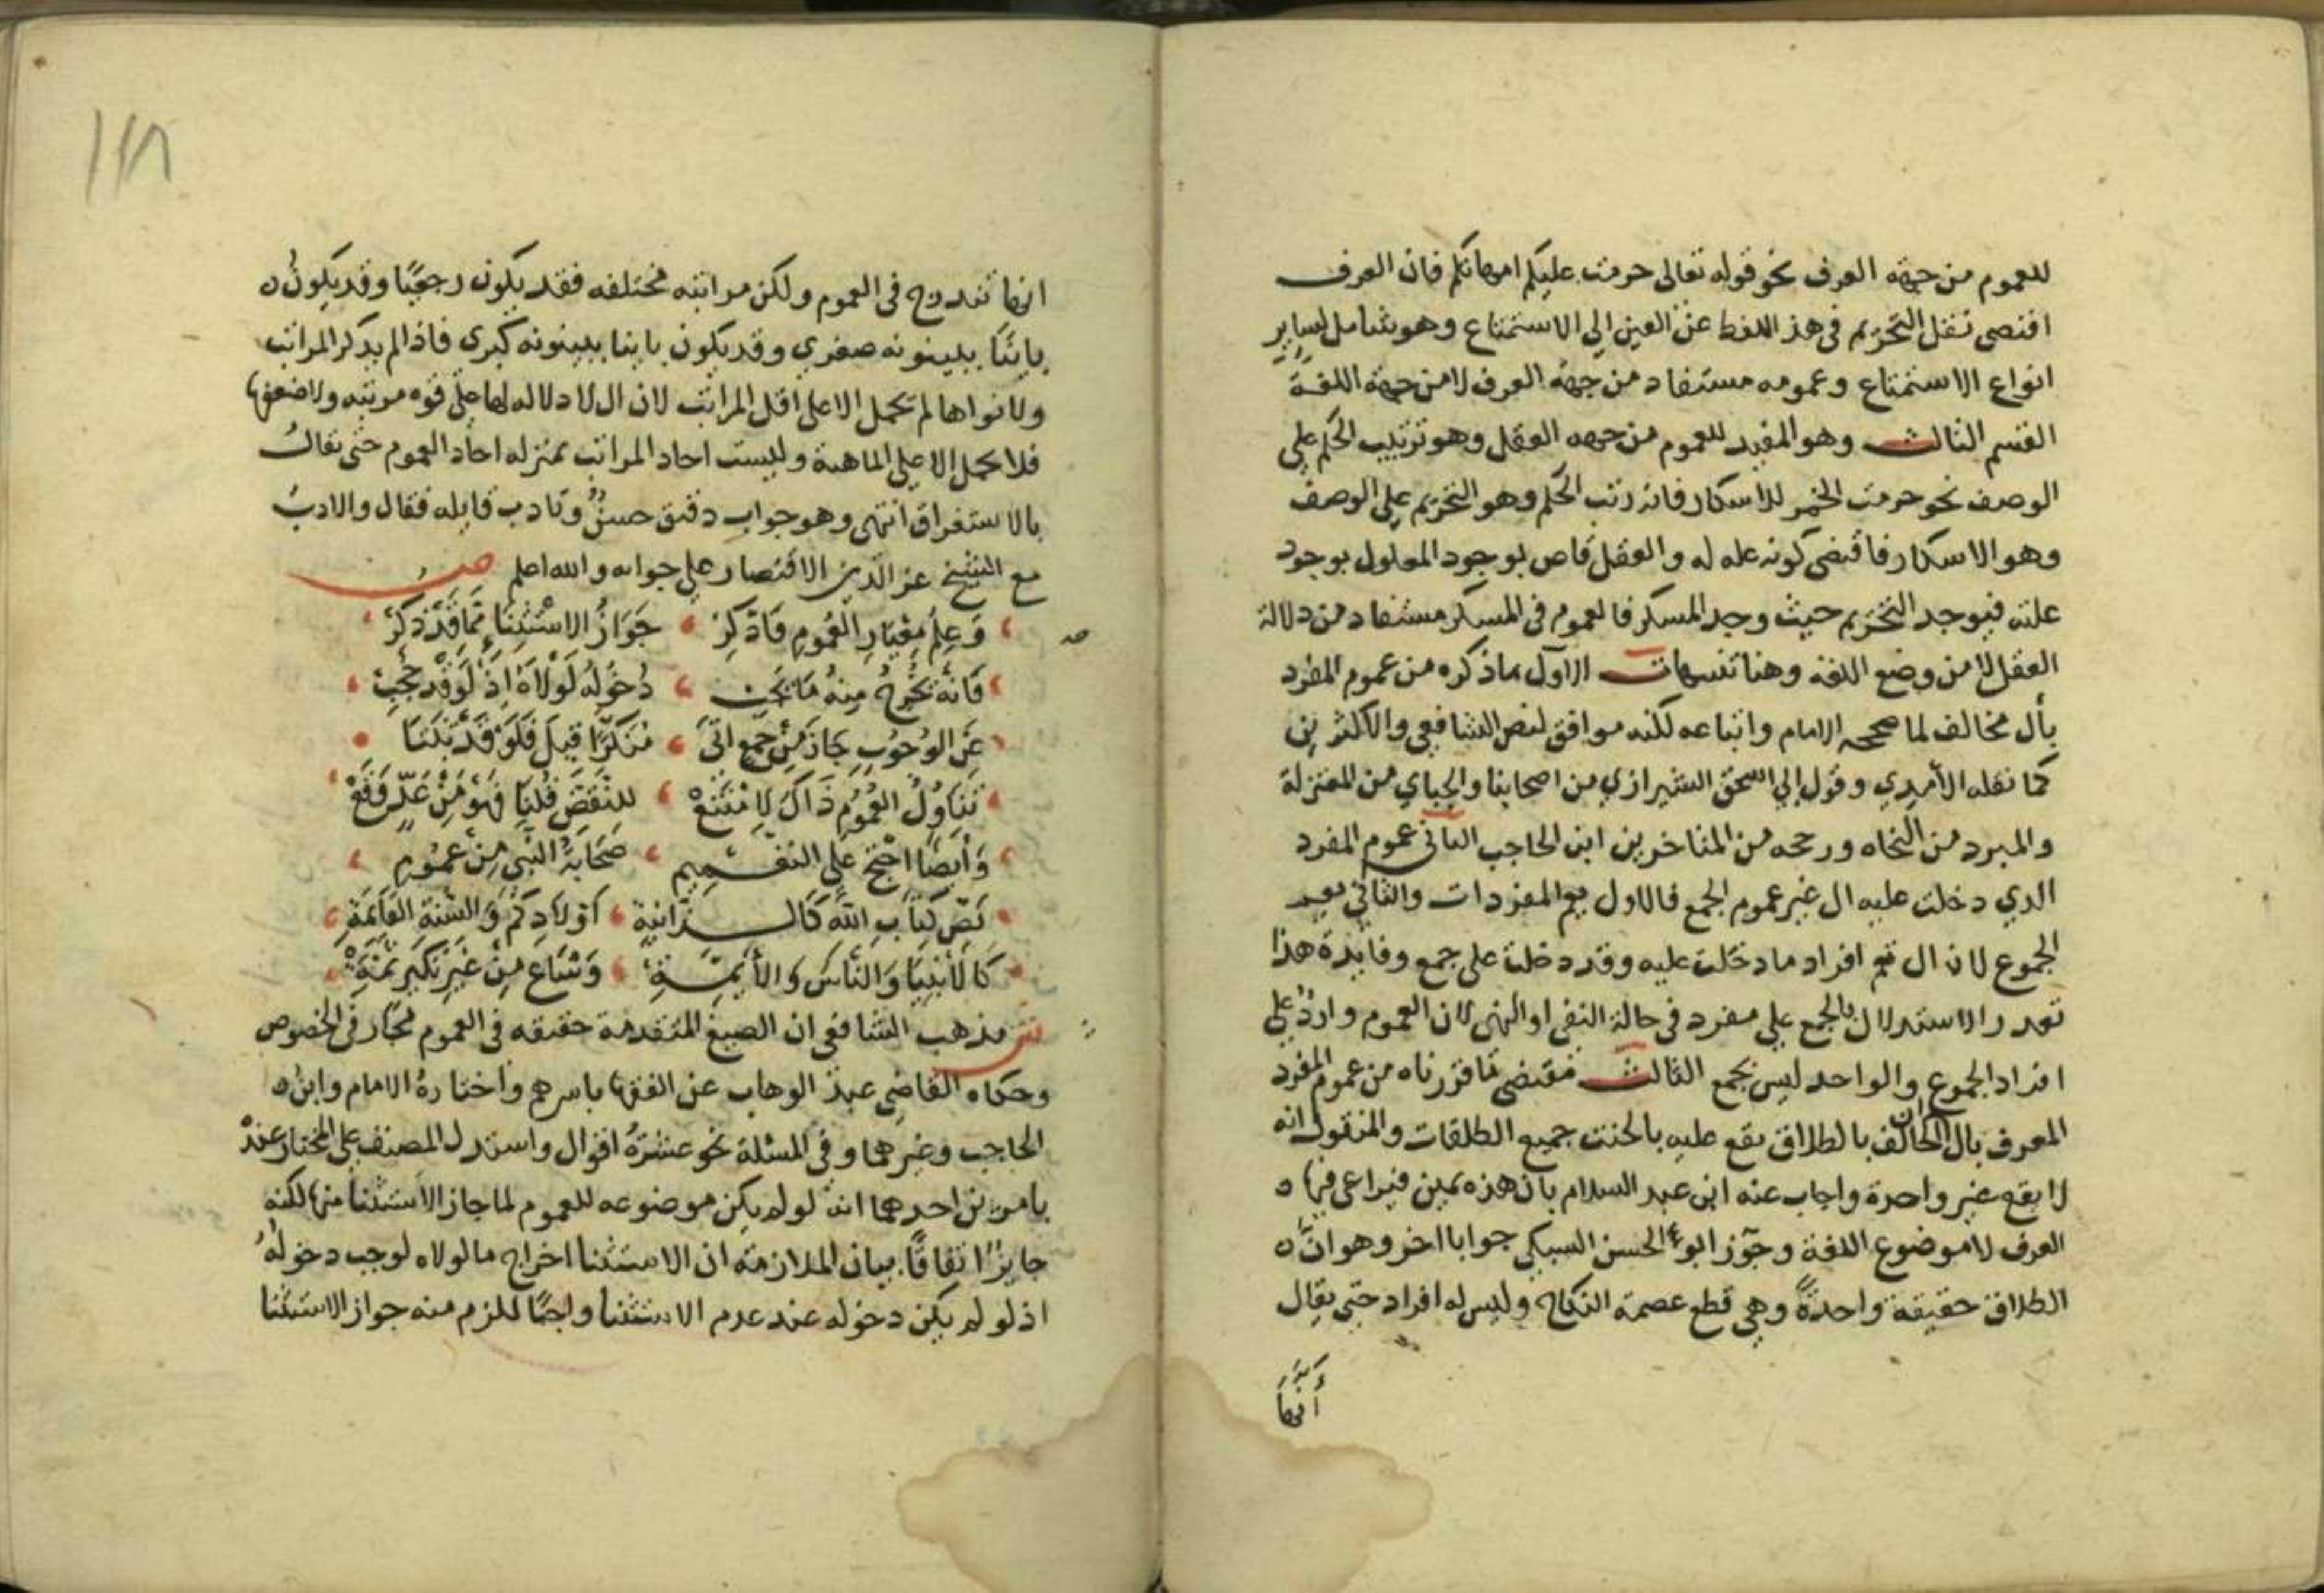 للعموم من جهة العرف نحو قوله تعالى حرمت عليكم امهاتكم فان العرف
اقتضى نقل التحريم في هذ اللفظ عن العين الي الاستمتاع وهو شامل لساير
انواع الاستمتاع وعمومه مستفاد من جهة العرف لا من جهة اللغة
القسم الثالث وهو المفيد للعموم من جهه العقل وهو ترتيب الحكم علي
الوصف نحو حرمت الخمر للاسكار فانه رتب الحكم وهو التحريم علي الوصف
وهو الاسكار فاقتضى كونه عله له والعقل قاص بوجود المعلول بوجود
علته فيوجد التحريم حيث وجد المسكر فالعموم في المسكر مستفاد من دلالة
العقل لا من وضع اللغه وهنا تنبيهات الاول ماذكره من عموم المفرد
بأل مخالف لما صححه الامام واتباعه لكنه موافق لنص الشافعي والاكثرين
كما نقله الأمدي وقول ابي اسحق الشيرازي من اصحابنا والجباي من المعتزلة
والمبرد من النحاه ورجحه من المتاخرين ابن الحاجب الثاني عموم المفرد
الدي دخلت عليه ال غير عموم الجمع فالاول يعم المفردات والثاني يعم
الجموع لان ال تعم افراد ما دخلت عليه وقد دخلت على جمع وفايدة هذا
تعدر الاستدلال بالجمع علي مفرد في حالة النفي او النهى لان العموم وارد علي
افراد الجموع والواحد ليس بجمع الثالث مقتضى ما قررناه من عموم المفرد
المعرف بال ان الحالف بالطلاق يقع عليه بالحنث جميع الطلقات والمنقول انه
لا يقع غير واحدة واجاب عنه ابن عبد السلام بان هذه يمين فيراعى فيها
العرف لا موضوع اللغة وجوز ابو الحسن السبكي جوابا اخر وهو ان
الطلاق حقيقة واحدة وهي قطع عصمة النكاح وليس له افراد حتي يقال
أنها
١١٨
انها تندرج في العموم ولكن مراتبه مختلفه فقد يكون رجعيا وقد يكون
باينا ببينونه صغري وقد يكون باينا ببينونه كبرى فاذا لم يدكر المراتب
ولا نواها لم تحمل الا علي اقل المراتب لان ال لا دلاله لها علي قوه مرتبه ولا ضعفها
فلا تحمل إلا علي الماهية وليست احاد المراتب بمنزله احاد العموم حتى يقال
بالاستغراق انتهى وهو جواب دقيق حسن وتادب قايله فقال والادب
مع الشيخ عز الدين الاقتصار علي جوابه والله اعلم ص
وَعِلْم مِعْيَارِ العُمُومِ فَادَّكِرْ جَوَازُ الاسْتثِنَاءِ مِمَا قَدْ ذكرْ
فَانهُ يُخْرِجُ مِنهُ مَا يَجِب دُخُولهُ لَوْلَاهُ اِذْ لَوْ قَدْ حُجِبْ
عَنِ الوُجُوبِ جَازَ مِنْ جمعٍ اتَى مُنَكرًا قيلَ فَلَوْ قَدْ ثبَتَا
تَنَاوُلُ العُمُومِ ذَاكَ لامْتَنَعْ للنَقضَ قُلْنَا فَهْوَ مِنْ وَقَعْ
وَأَيْضًا احْتجّ علي التعميمِ صَحَابَةُ النَّبى مِنْ عمُومِ
نَصّ كتَابِ اللهِ كَالزانيةِ أوْلَادِكمْ وَالسُنةِ القَايمَةِ
كَالأنبيَا وَالنَّاس وَالأيمّةِ وَشَاعَ مِنْ غَيرِ نَكِيرٍ ثَمّتِ
ش مذهب الشافعي ان الصيغ المتقدمة حقيقه في العموم مجاز في الخصوص
وحكاه القاضي عبد الوهاب عن الفقها باسرهم واختاره الامام وابن
الحاجب وغيرهما وفي المسئلة نحو عشرة اقوال واستدل المصنف علي المختار عنده
بامرين احدهما انه لو لم يكن موضوعه للعموم لما جاز الاستثنا منها لكنه
جايز اتفاقا بيان الملازمة ان الاستثنا اخراج ما لولاه لوجب دخوله
اذ لو لم يكن دخوله عند عدم الاستثنا واجبا للزم منه جواز الاستثنا